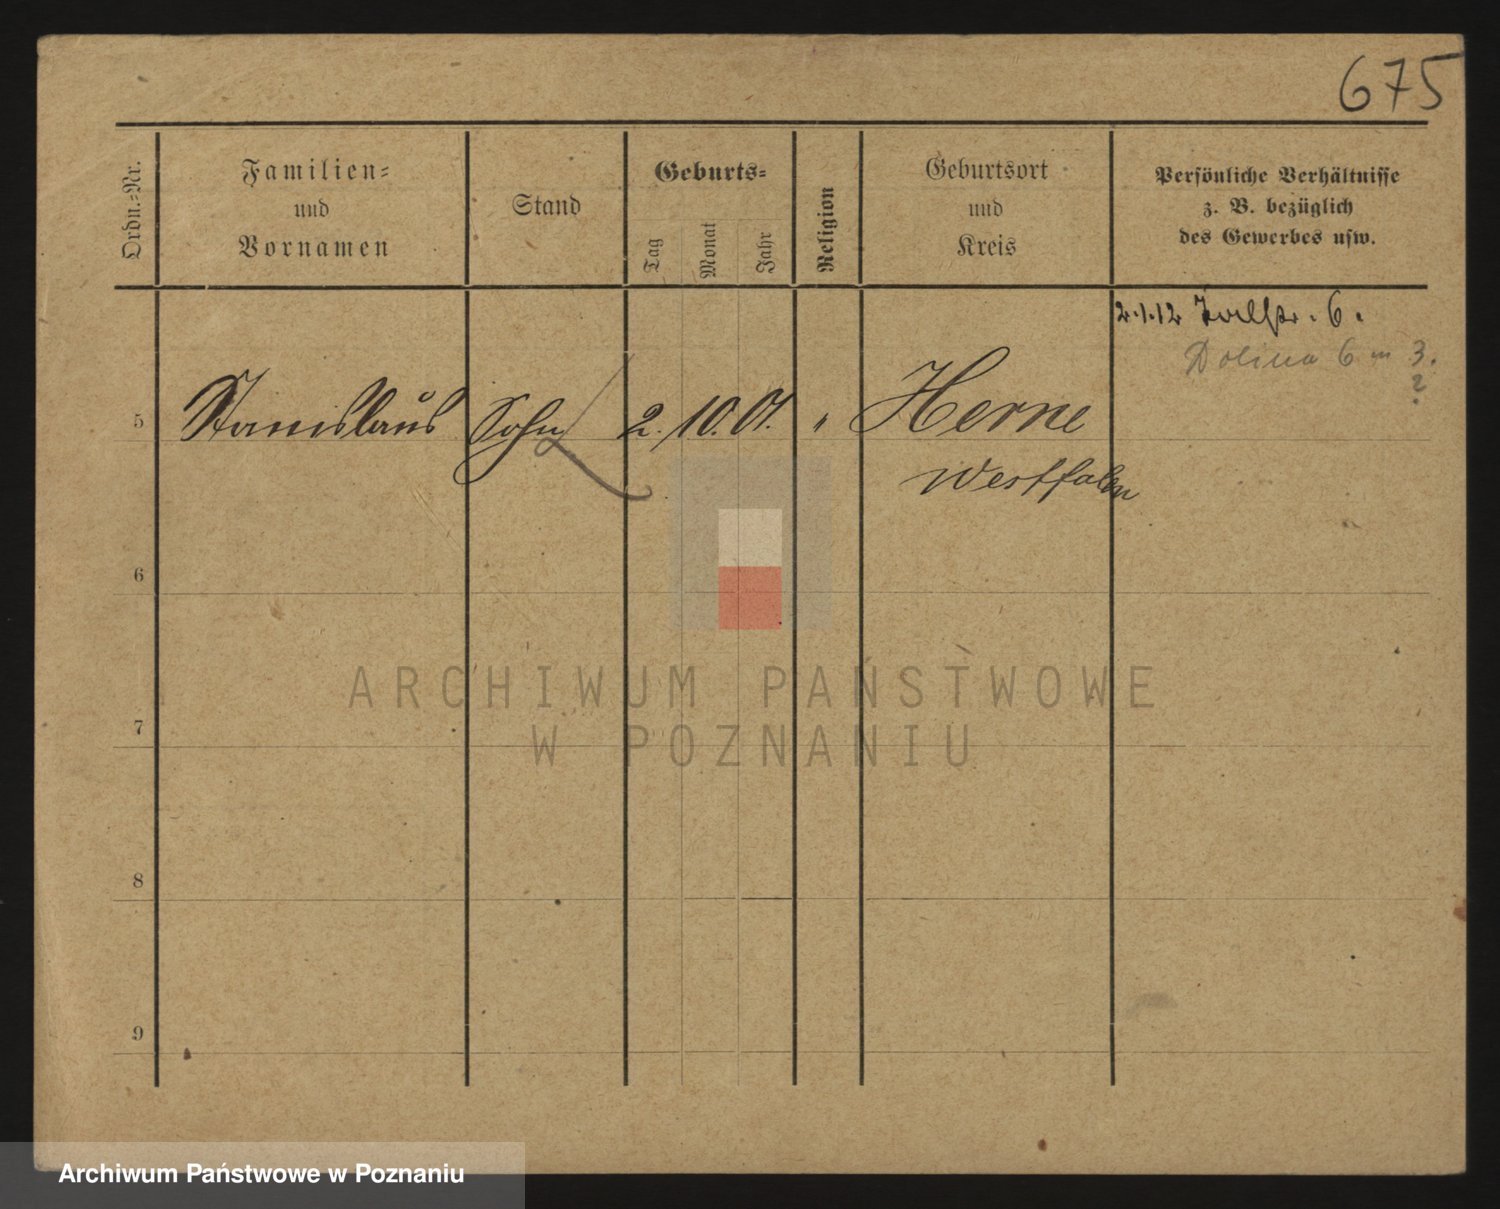 675
Ordn.-Nr.
Familien-
und
Vornamen
Stand
Geburts-
Tag
Monat
Jahr
Religion
Geburtsort
und
Kreis
Persönliche Verhältnisse
z. B. bezüglich
des Gewerbes usw.
2.1.12 6.
Dolina 6 m 3.
?
5 Stanislaus Sohn 2. 10. 01. " Herne
Westfalen
6
7
8
9
ARCHIWUM PAŃSTWOWE
W POZNANIU
Archiwum Państwowe w Poznaniu